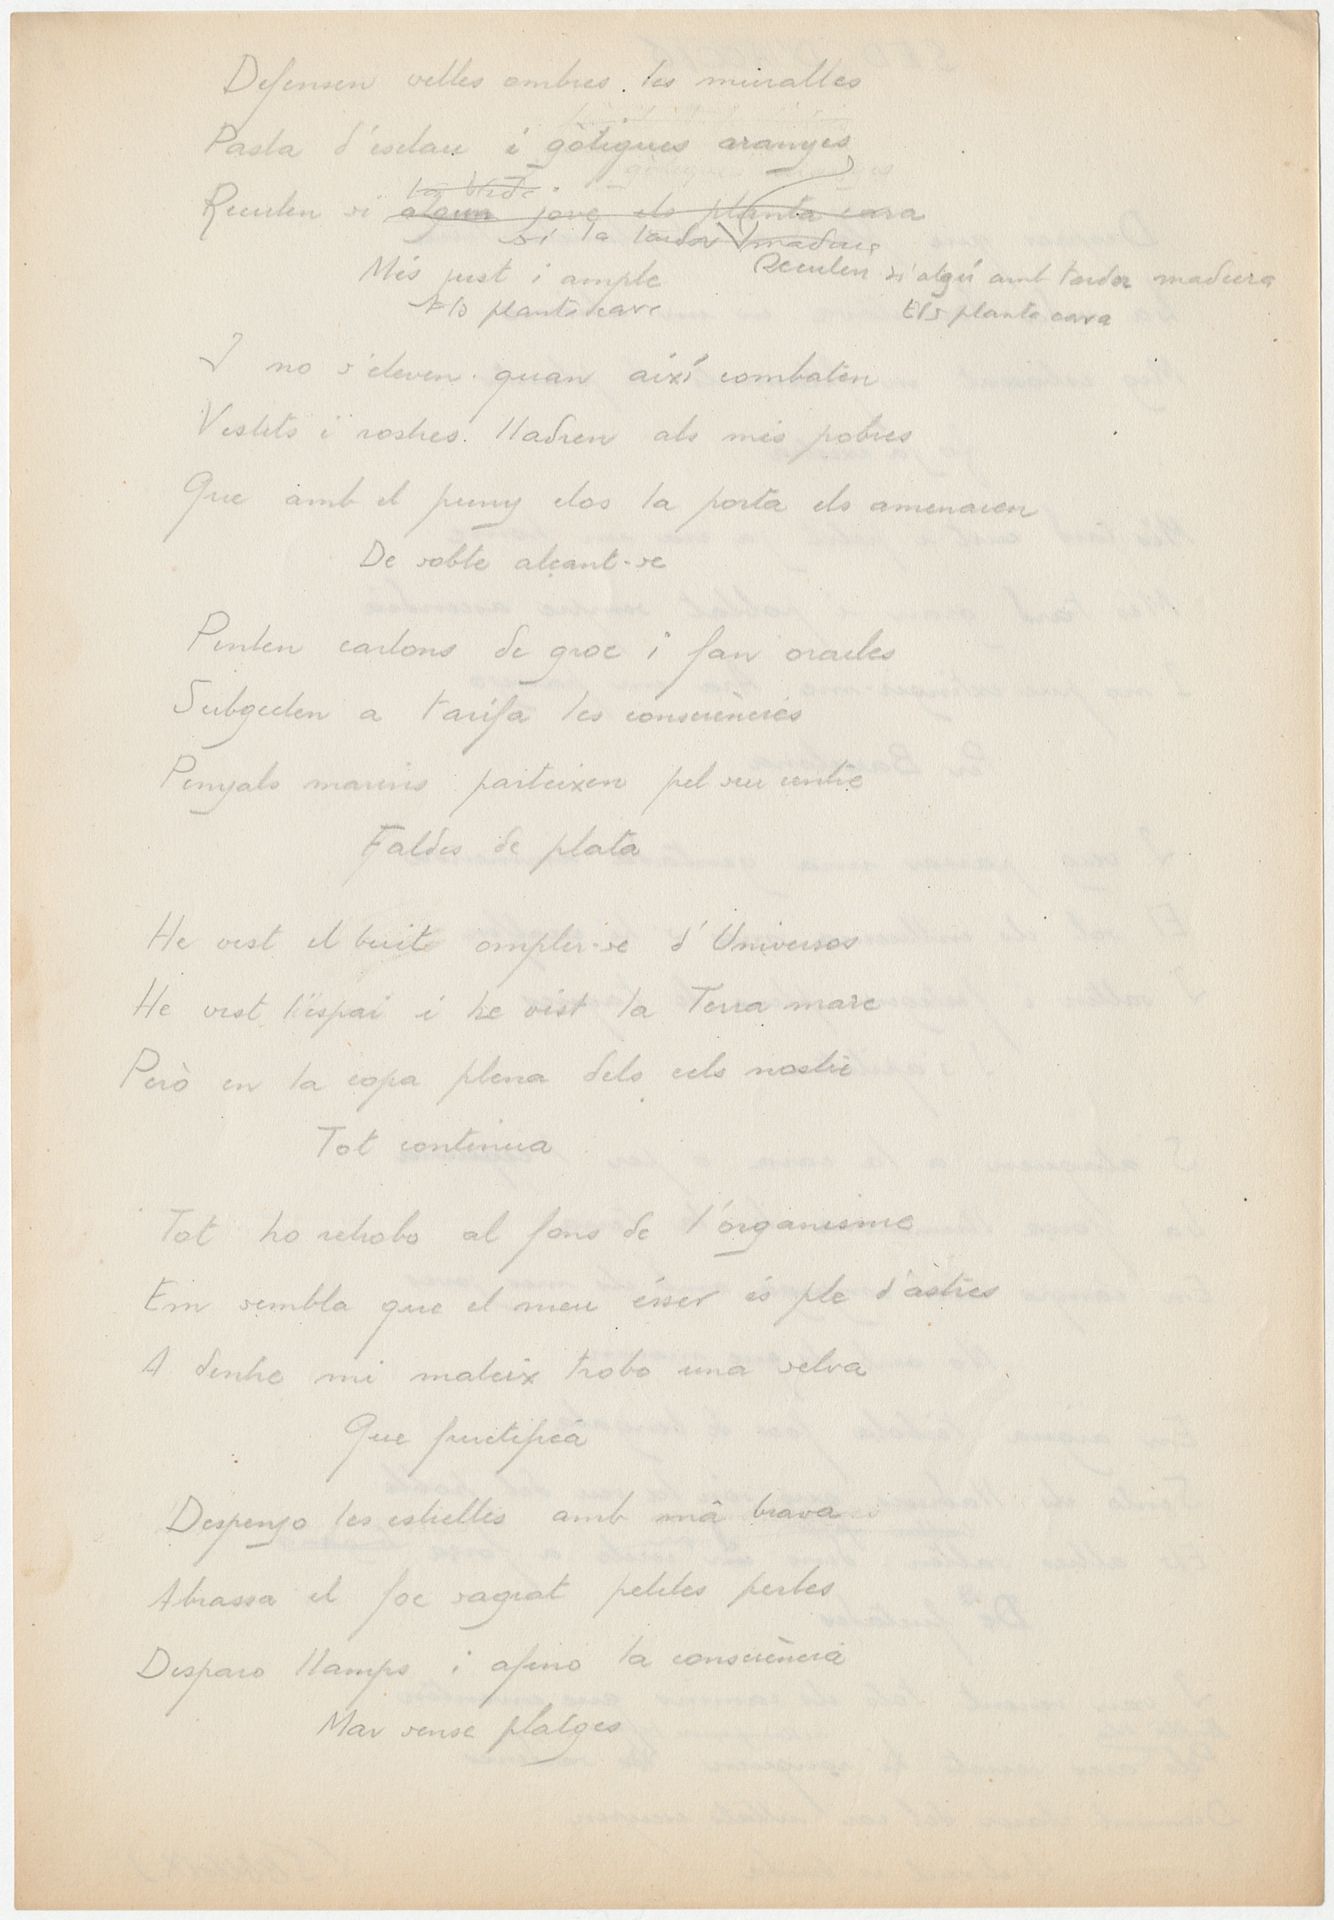 Defensen velles ombres les muralles
Pasta d'esclau i gòtigues aranyes
la tarda
Reculen si algun jove els planta cara
si la tardor madura
Més just i ample
Els planta cara
Reculen si algú amb tardor madura
Els planta cara
I no s'eleven quan així combaten
Vestits i rostres. Lladren als més pobres
Que amb el puny clos la porta els amenacen
De roble alçant-se
Pinten cartons de groc i fan oracles
Subgecten a tarifa les consciències
Penyals marins parteixen pel seu centre
Faldes de plata
He vist el buit omplir-se d'Universos
He vist l'espai i he vist la Terra mare
Però en la copa plena dels cels nostre
Tot continua
Tot ho retrobo al fons de l'organisme
Em sembla que el meu ésser és ple d'àstres
A dintre mi mateix trobo una selva
Que fructifica
Despenjo les estrelles amb mà brava
Abrassa el foc sagrat petites perles
Disparo llamps i afino la consciència
Mar sense platges